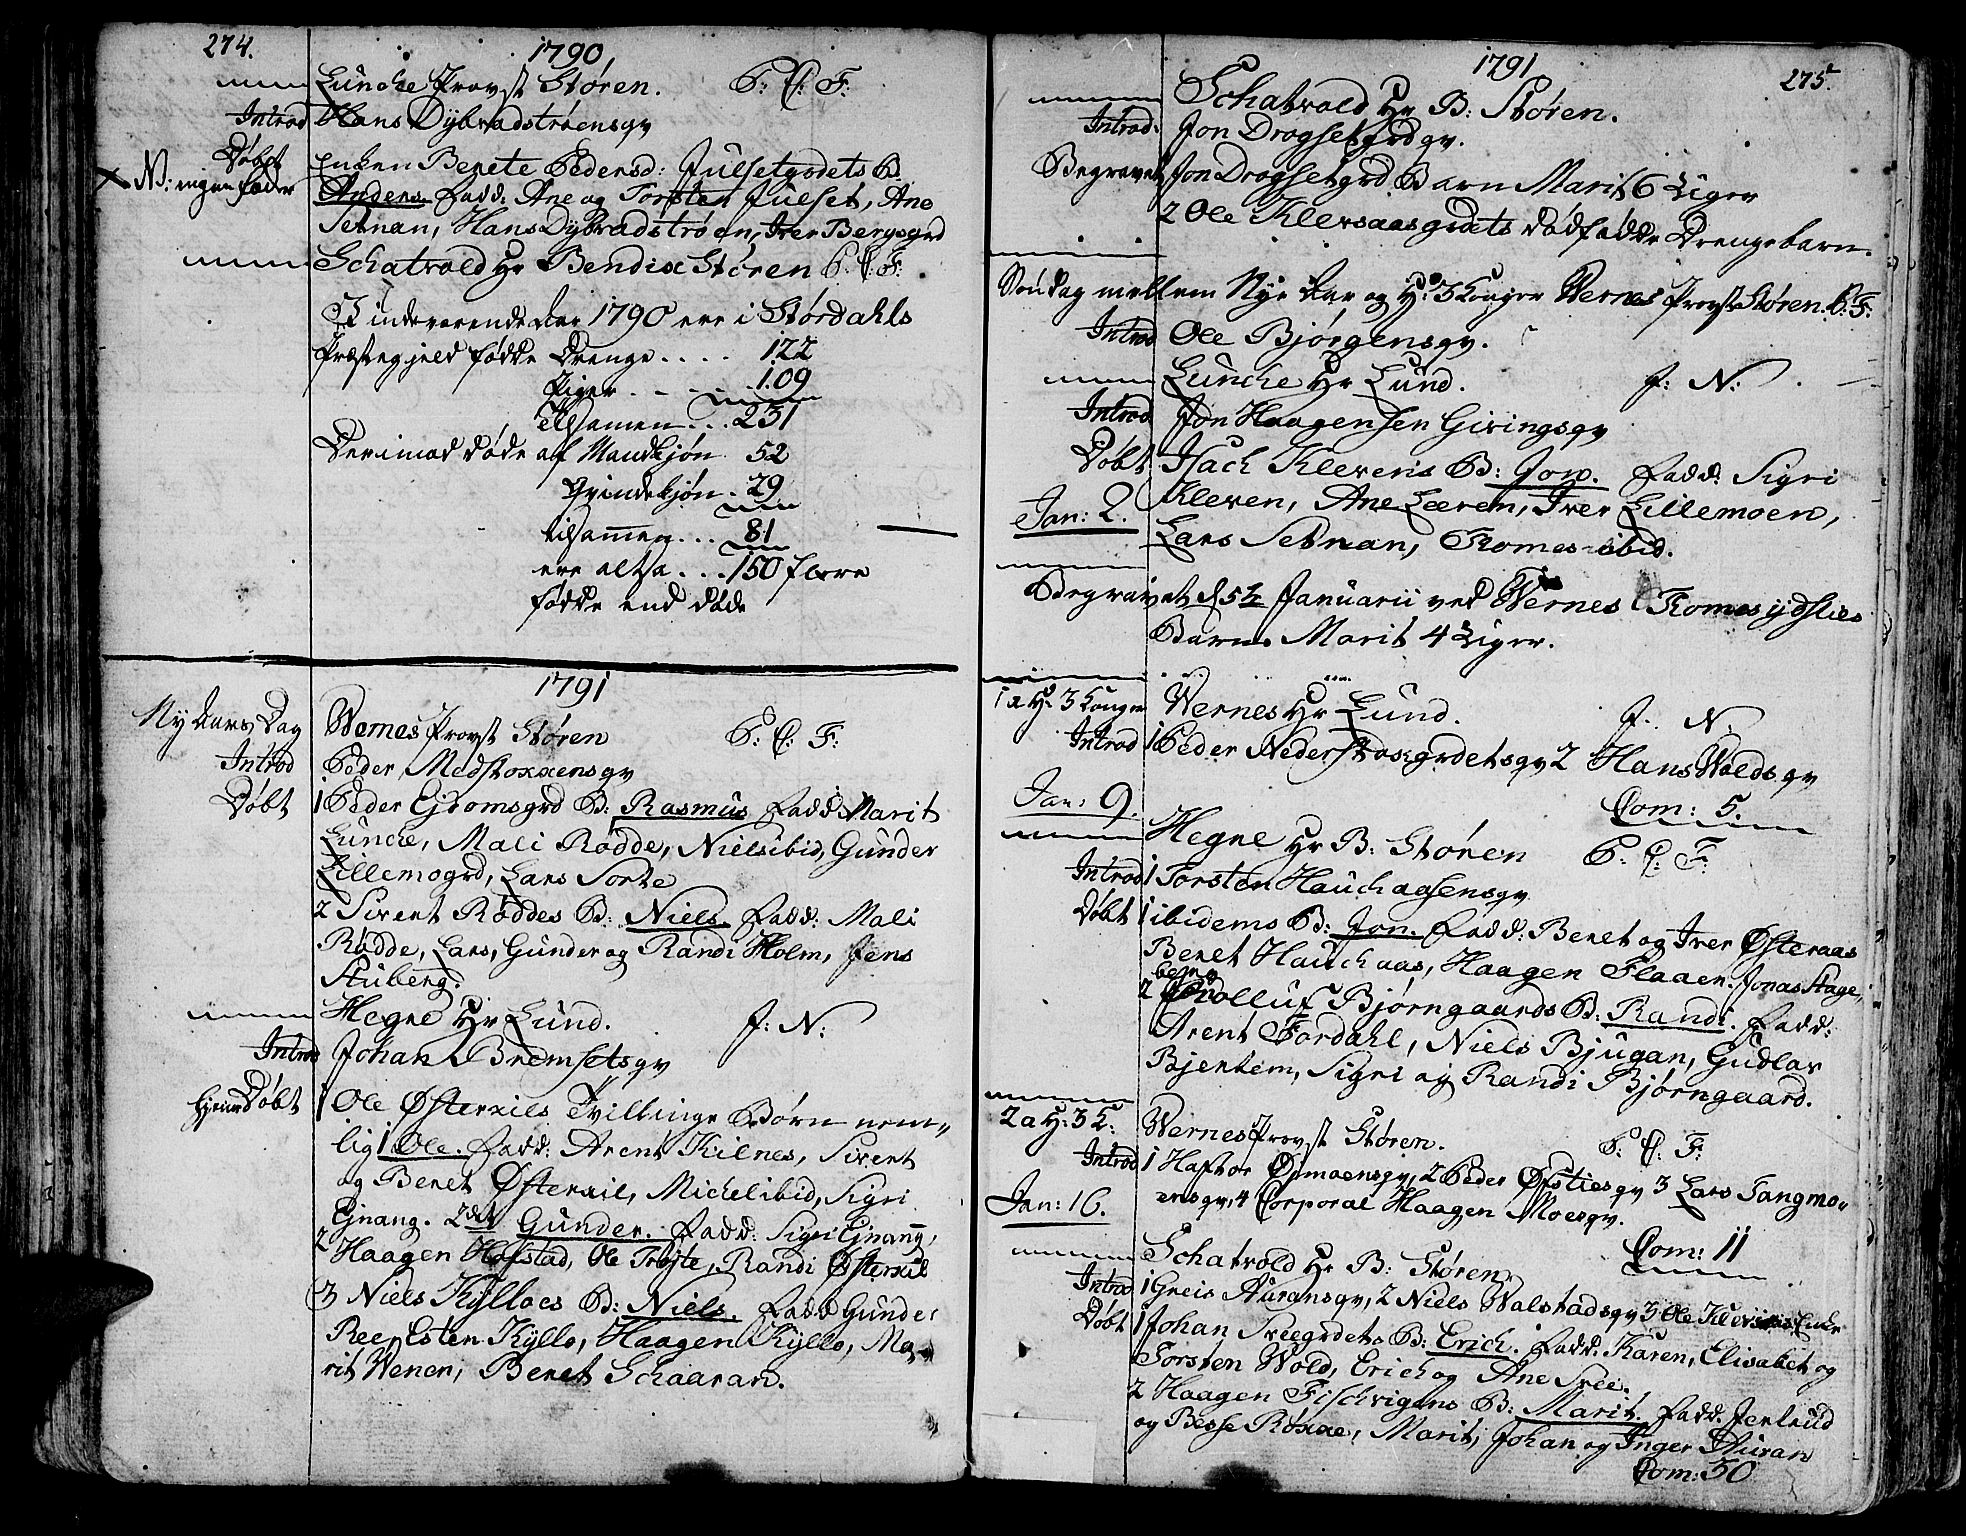 274.
1790
Lunche Provst Støren. P: C: F:
Introd Hans Dybvadstrøensgv
Døbt Enken Berete Pedersd: Julsetgrdets B.
N: ingen fader
Anders. Fadd: Ane og Torsten Julset, Ane
Setnan, Hans Dybvadstrøen, Iver Bergsgrd
Schatvold Hr Bendix Støren P. C: F:
I indeværende Aar 1790 ere i Størdahls
Præstegjeld fødde Drenge.... 122
Piger. . . 109
tilsamen... 231
Derimod døde af Mandkjøn. 52
Qvindekjøn. 29
tilsamen... 81
ere altsa... 150 flere
fødde end døde
1791
Ny Aars Dag Wernes Provst Støren P: C: F:
Introd Peder Medstoxxensgv
Døbt 1 Peder Gjeomsgrd B: Rasmus Fadd: Marit
Lunche, Mali Rødde, Niels ibid, Gunder
Lillemogrd, Lars Sorte
2 Sivert Røddes B: Niels. Fadd: Mali
Rødde, Lars, Gunder og Randi Holm, Jens
Stuberg.
Hegne Hr Lund. J: N:
Introd Johan Bremsetsgv
Hjemdøbt 1 Ole Østerxils Tvillinge Børn nem„
lig 1 Ole. Fadd: Arent Kilnes, Sivert
og Beret Østerxil, Michel ibid, Sigri
Ejnang. 2det Gunder. Fadd: Sigri Ejnang,
2 Haagen Hofstad, Ole Trøjte, Randi Østerxil
3 Niels Kylloes B: Niels. Fadd Gunder
Ree, Esten Kyllo, Haagen Kyllo, Ma-
rit Wener, Beret Schaaran.
1791
275.
Schatvold Hr B: Støren.
Introd: Jon Drogsetgrdgv.
Begravet Jon Drogsetgrd Barn Marit 6 Uger
2 Ole Klevsaasgrdets dødfødde Drengebarn.
Søndag mellem Nye Aar og H: 3 Konger Wernes Provst Støren. C: F:
Introd Ole Bjørgensgv.
Lunche Hr Lund. J: N:
Introd Jon Haagensen Givingsgv
Døbt Isach Klevens B: Jon. Fadd: Sigri
Jan: 2. Kleven, Ane Læren, Iver Lillemoen,
Lars Setnan, Tomes ibid.
Begravet d 5te Januarii ved Wernes Tomes ydsties
Barn. Marit 4 Uger.
1 a H. 3 Konger Wernes Hr Lund. J. N.
Introd 1 Peder Nederstoxgrdetsgv 2 Hans Woldsgv
Jan: 9. Com: 5.
Hegne Hr B: Støren P: C: F:
Introd 1 Torsten Hauchaasensgv
Døbt 1 ibidems B: Jon. Fadd: Beret og Iver Østeraas
Beret Hauchaas, Haagen Flaaen. Jonas Stage,
hjem
2 Trolluf Bjørngaards B: Randi. Fadd:
Arent Fordahl, Niels Bjugan, Gudlov
Bjertem, Sigri og Randi Bjørngaard.
2 a H: 3 K: Wernes Provst Støren. P: C: F:
Introd 1 Haftor Øjmoensgv, 2 Peder Øfstiesgv 3 Lars Tangmo„
Jan: 16. ensgv, 4 Corporal Haagen Moesgv.
Com: 11
Schatvold Hr B: Støren
Introd 1 Greis Auransgv, 2 Niels Walstadsgv 3 Ole Enke
Døbt 1 Johan Sveegrdets B: Erich. Fadd: Karen, Elisabet og
Torsten Wold, Erich og Ane Svee.
2 Haagen Fischvigens B: Marit. Fadd: Jerlaud
og Besse Røxxe, Marit, Johan og Inger Auran
Com: 50